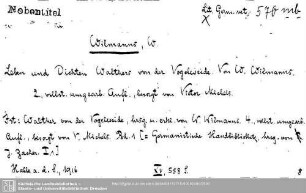 Nebentitel
Lit. Germ. rec. 576 mb
zu
Wilmanns, W.
Leben und Dichten Walthers von der Vogelweide. Von W. Wilmanns.
2. vollst. umgearb. Aufl., besorgt von Victor Michels.
Walther von der Vogelweide, hrsg. u. erkl. von W. Wilmanns. 4. vollst. umgearb.
Aufl., besorgt von V. Michels. Bd. 1 [= Germanistische Handbibliothek, hrsg. von
J. Zacher. I 1]
Halle a. d. S., 1916
558 S.